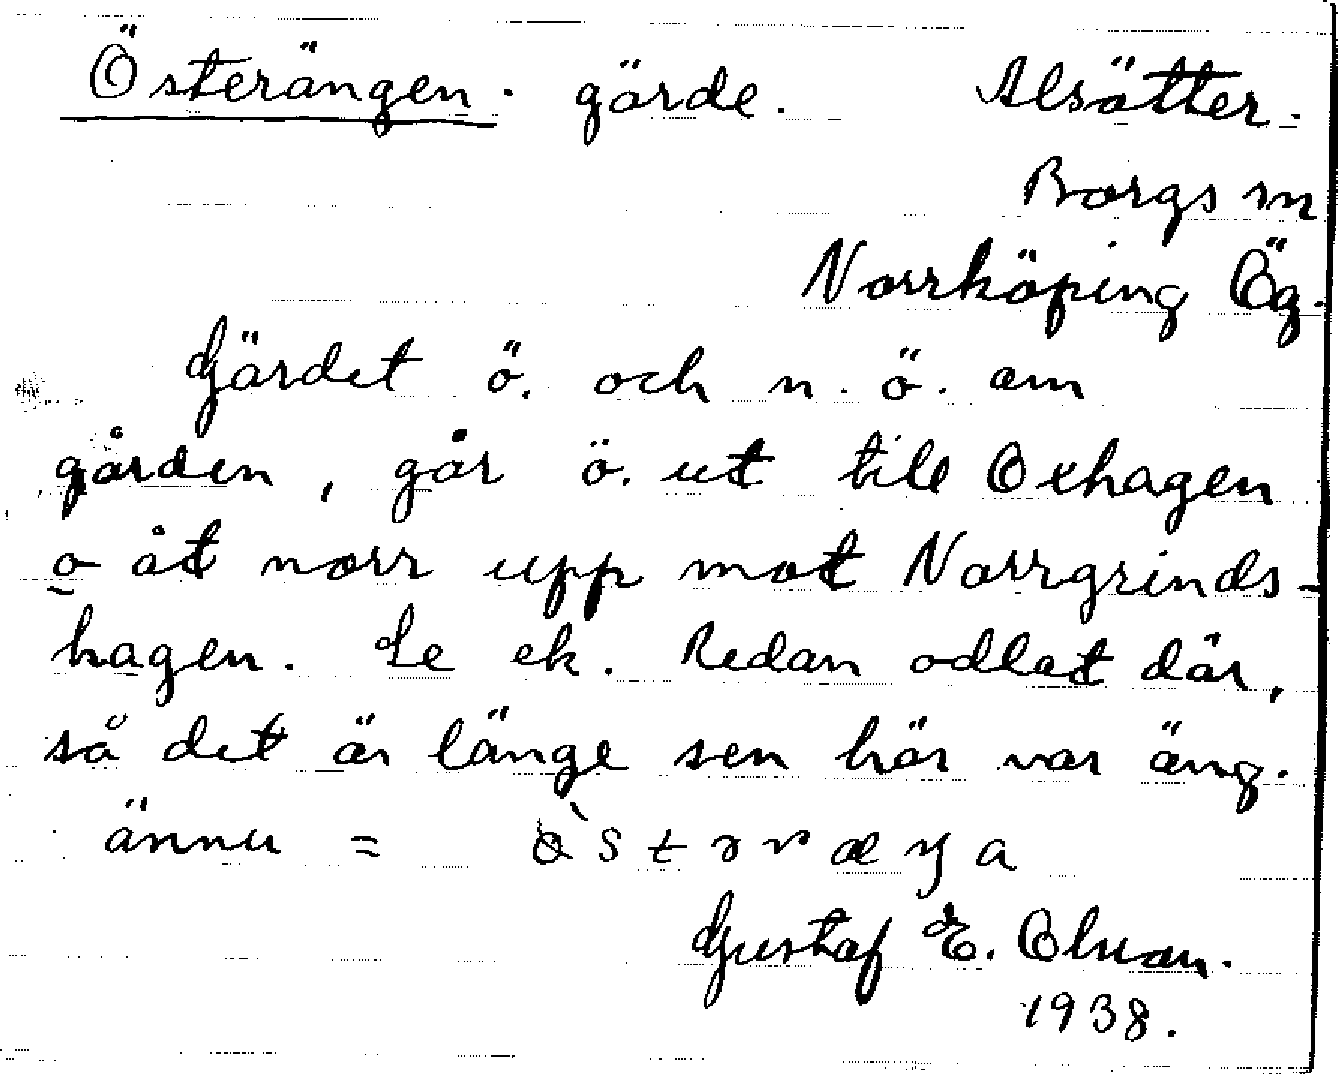 Österängen. gärde. Alsätter.
Borgs sn
Norrköping Ög.
Gärdet ö. och n. ö. om
gården, går ö. ut till Oxhagen
o åt norr upp mot Norrgrinds-
hagen. Se ek. Redan odlat där,
så det är länge sen här var äng.
ännu =
Gustaf E.
1938.